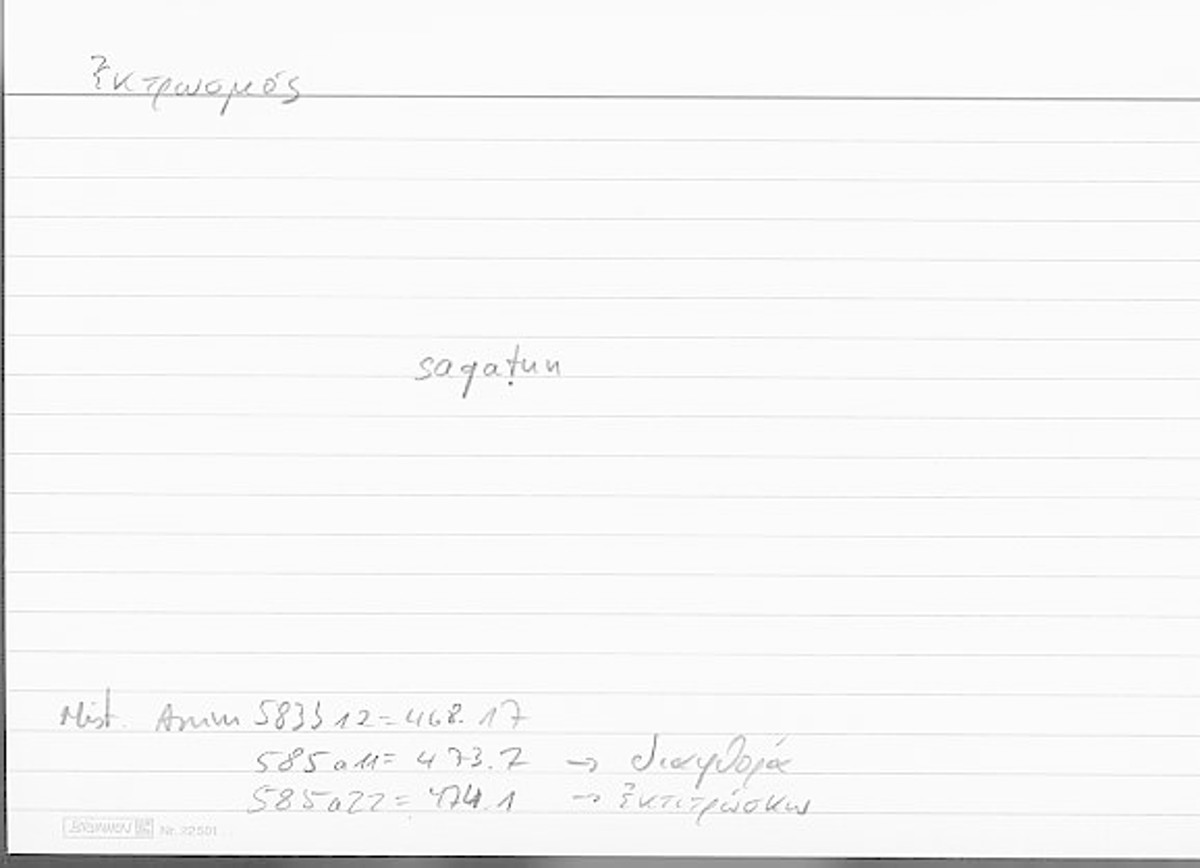 ἐκτρωσμός
saqaṭun
Hist. Anim 583b12 = 468.17
585a11 = 473.7 → διαφθορά
585a22 = 474.1 → ἐκτιτρώσκω
BRUNNEN Nr. 22501